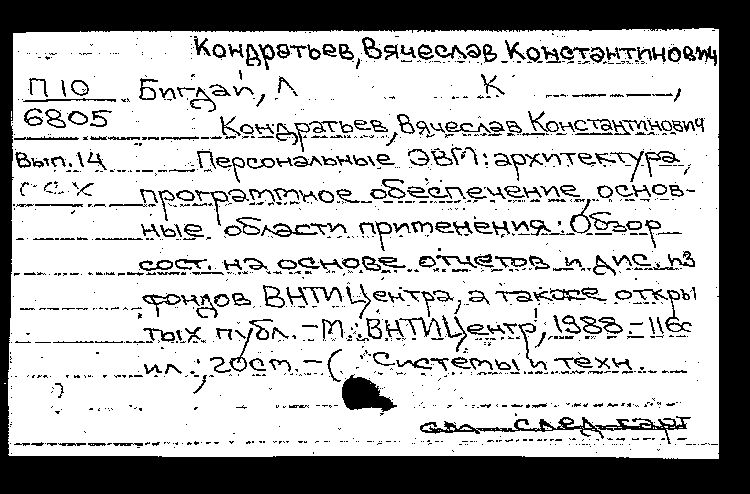 Кондратьев, Вячеслав Константинович
П 10 Бигдай, Л К ,
6805 Кондратьев, Вячеслав Константинович
Вып. 14 Персональные ЭВМ: архитектура,
программное обеспечение, основ-
ные области применения: Обзор
сост. на основе отчетов и дис. из
фондов ВНТИЦентра, а также откры
тых публ. - М.: ВНТИЦентр, 1988. - 116с
ил.; 20см. - ( Системы и техн.
см след карт